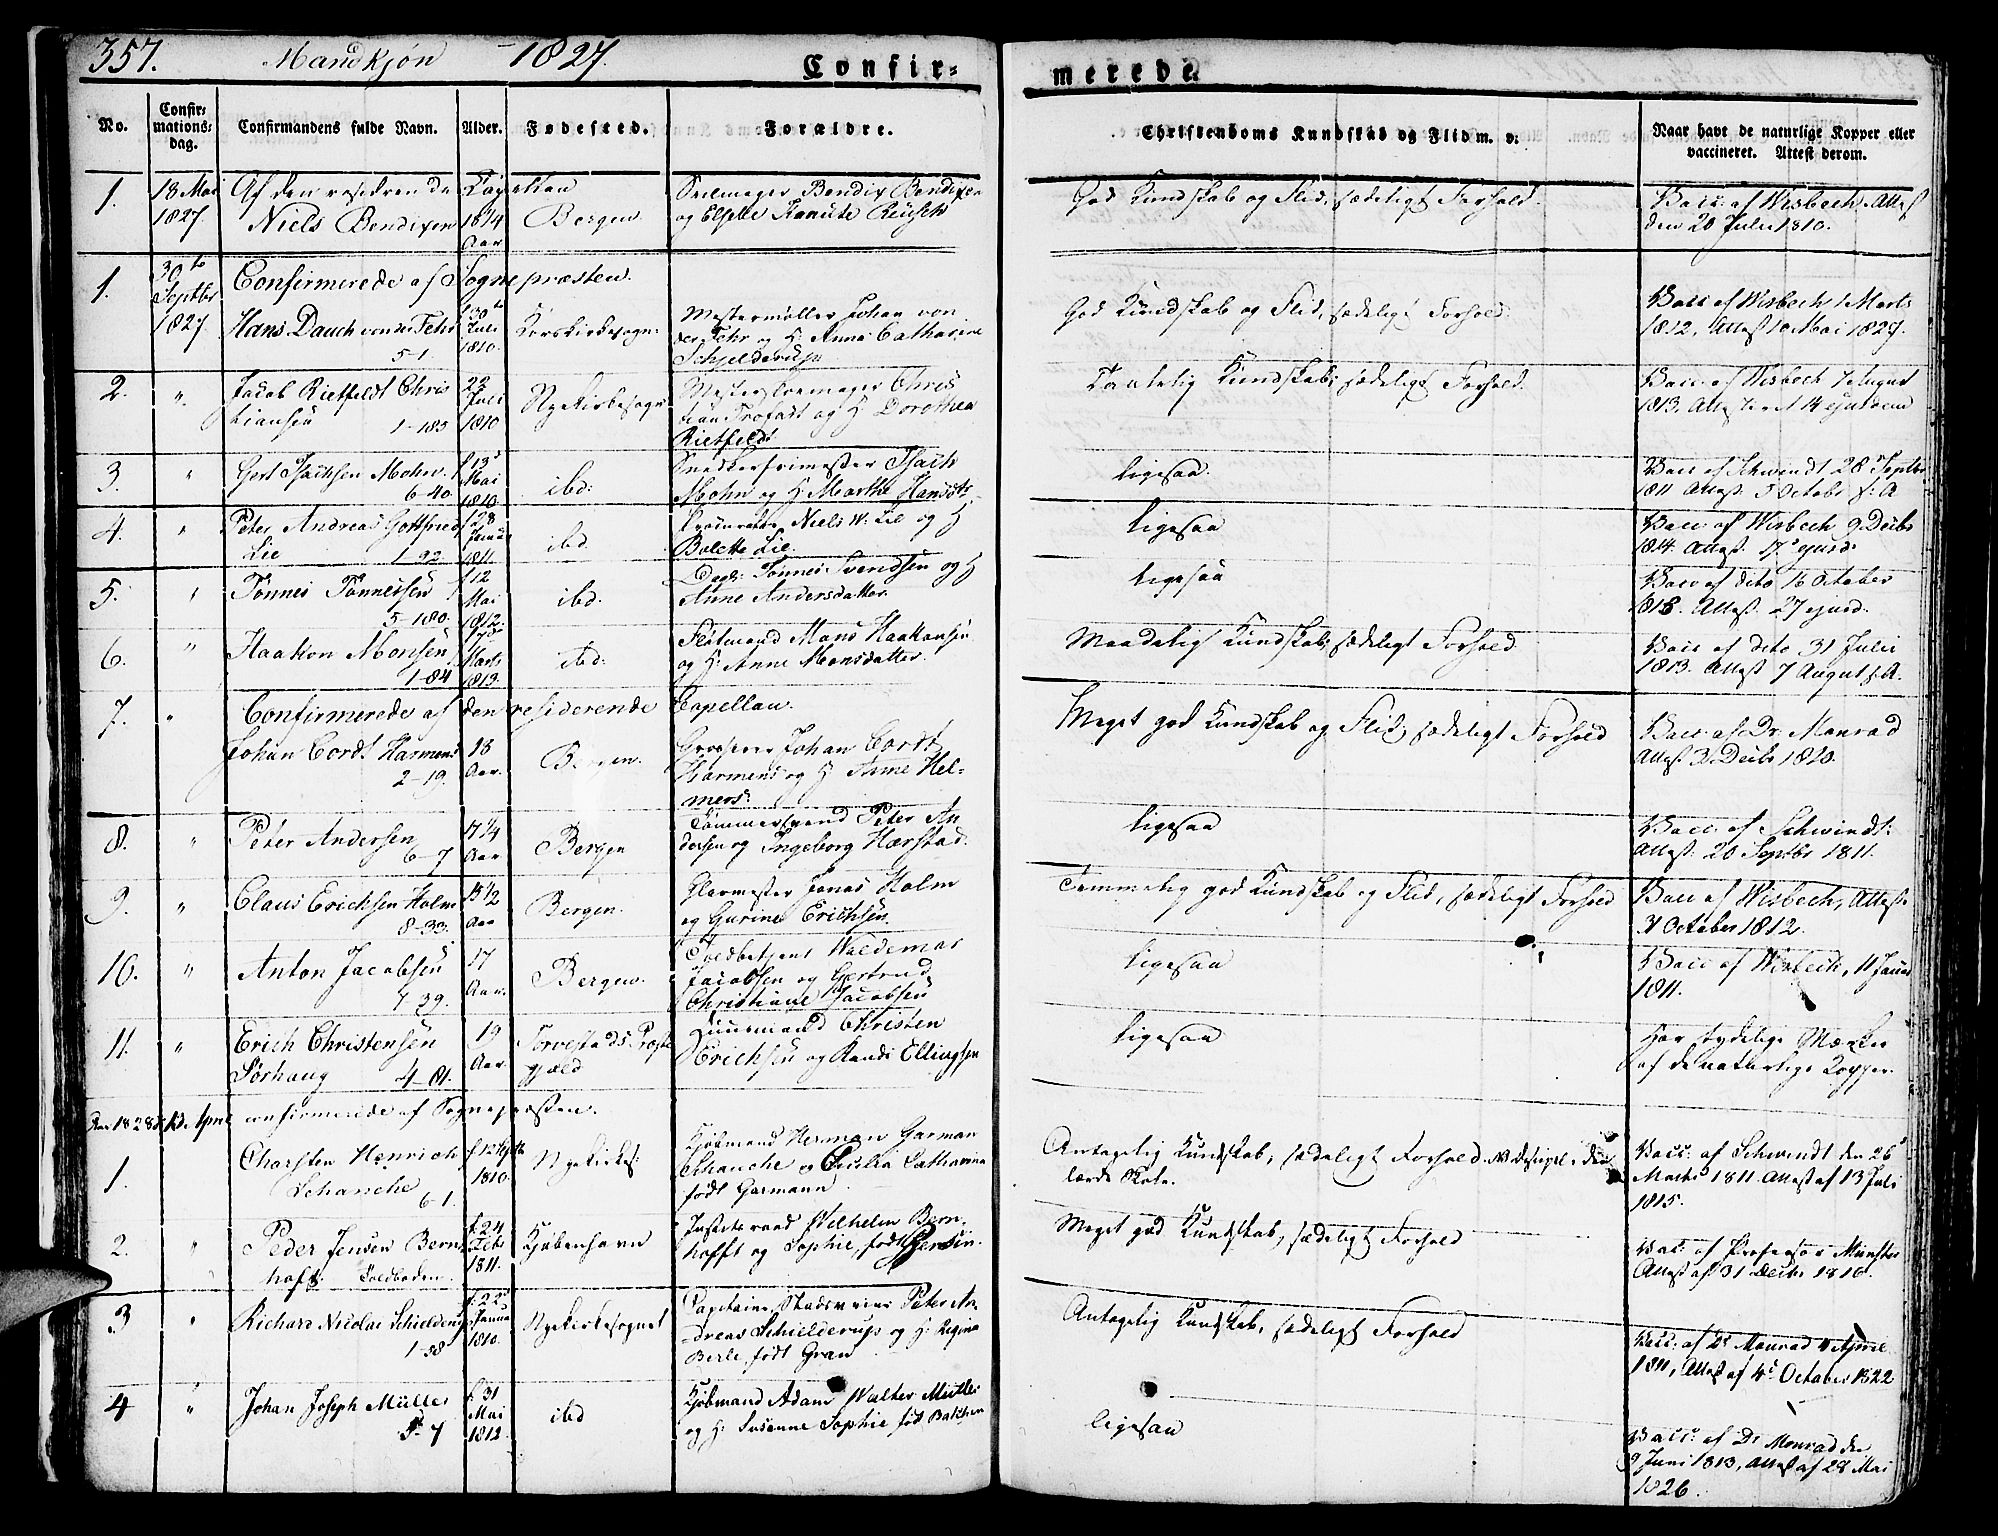 357. Mandkjøn - 1827. Confir-
merede.
No.
Confir-
mations-
dag.
Confirmandens fulde Navn.
Alder.
Fødested.
Forældre.
Christendoms Kundskab og Flid m. v.
Naar havt de naturlige Kopper eller
vaccineret. Attest derom.
1. 18 Mai Af den residerende Capellan
1827. Niels Bendixen 18 1/4 Aar Bergen.
Seilmager Bendix Bendixen
og Elsebe Kanute Reusch
God Kundskab og Flid, sædeligt Forhold.
Vacc: af Wisbech. Attest
den 20 Julii 1810.
1. 30te Septbr 1827.
Confirmerede af Sognepræsten.
Hans Dauch von der Fehr
5-1.
f 30te Juli 1810.
Korskirkesogn
Mestermøller Johan von
der Fehr og H: Anna Catharine
Schjelderup
God Kundskab og Flid, sædeligt Forhold.
Vacc af Wisbech 1 Marts
1812, Attest 10 Mai 1827.
2. " Jacob Rietfeldt Chris
tiansen 1-183
22 Juli 1810
Nyekirkesogn
Christian Trofast og H Dorothea
Rietfeldt
Taalelig Kundskab, sædeligt Forhold.
Vacc af Wisbech 7 August
1813. Attesteret 14 ejusdem
3. " Gert Isachsen Mohn.
6-40.
f 13de Mai 1810.
ibd:
Snedkersvimester Isach
Mohn og H: Marthe Hansdtr
ligesaa.
Vacc af Schwindt 28 Septbr
1811 Attest. 5 Octobr s: A
4. " Peter Andreas Gottfried
Lie 1-92
f 28 Januar 1811.
ibd.
Niels W. Lie og H
Bolette Lie.
ligesaa
Vacc af Wisbech 9 Decbr
1814. Attest. 17de ejusd:
5. " Tønnes Tønnessen
5-180.
f 12 Mai 1812.
ibd.
Tønnes Svendsen og H
Anne Andersdatter.
ligesaa
Vacc af dito 16 October
1818. Attest. 27 ejusd.
6. " Haakon Monsen
1-84
Marts 1813.
ibd:
Flotmand Mons Haakonsen
og H: Anne Monsdatter.
Maadelig Kundskab, sædeligt Forhold.
Vacc af dito 31 Julii
1813. Attest 7 August s. A.
7. " Confirmerede af den residerende Capellan.
Johan Cordt Harmens
2-19.
18 Aar.
Bergen.
Johan Cordt
Harmens og H Anne Hel-
mers.
Meget god Kundskab og Flid, sædeligt Forhold
Vacc: af Dr. Monrad
Attest 3 Decbr 1810.
8. " Peter Andersen
6-7
17 1/4 Aar
Bergen
Tømmersvend Peter An
dersen og Ingeborg Hærstad.
ligesaa
Vacc: af Schwindt:
Attest. 20 Septbr 1811.
9. " Claus Erichsen Holm
8-33.
18 1/2 Aar
Bergen.
Glarmester Jonas Holm
og Gurine Erichsen
Temmelig god Kundskab og Flid, sædeligt Forhold
Vacc af Wisbech, Attest.
31 October 1812.
10. " Anton Jacobsen
7-39.
17 Aar.
Bergen.
Toldbetjent Waldemar
Jacobsen og Gertrud
Christiane Jacobsen
ligesaa
Vacc af Wisbech, 11 Januar
1811.
11. " Erich Christensen
Sørhaug 4-81.
19 Aar.
Torvestads Præste
gjæld
Huusmand Christen
Erichsen og Randi Ellingsen
ligesaa
Har tydelige Mærker
af de naturlige Kopper.
Aar 1828 d. 13 April confirmerede af Sognepræsten.
1. Charsten Henrich
Schanche 6-1.
f 12 Septbr 1810.
Nyekirkes:
Kjøbmand Herman Garman
Schanche og Cecilia Catharina
født Garmann.
Antagelig Kundskab, sædeligt Forhold. NB Discipel i den
lærde Skole.
Vacc: af Schwindt den 26
Marts 1811. Attest af 13 Juli
1815.
2. " Peder Jensen Bern-
hoft. Toldboden.
f. 24 Febr 1811.
Kjøbenhavn
Justitsraad Wilhelm Bern-
hofft og Sophie, født Jensen.
Meget god Kundskab, sædeligt Forhold
Vacc: af Professor Münster
Attest af 31 Decbr 1816.
3 " Richard Nicolai Schjelderup
1-58
f. 22 Januar 1810.
Nyekirkesognet
Capitaine, Peter An-
dreas Schjelderup og H: Regina
Berle, født Gran
Antagelig Kundskab, sædeligt Forhold
Vacc: af Dr Monrad April
1811, Attest af 4de October 1822
4 " Johan Joseph Müller
5-7
f. 31 Mai 1812.
ibd
Kjøbmand Adam Walter Müller
og H: Susanne Sophie født Bakken
ligesaa
Vacc: af Dr Monrad den
9 Juni 1813, Attest af 28 Mai
1826.